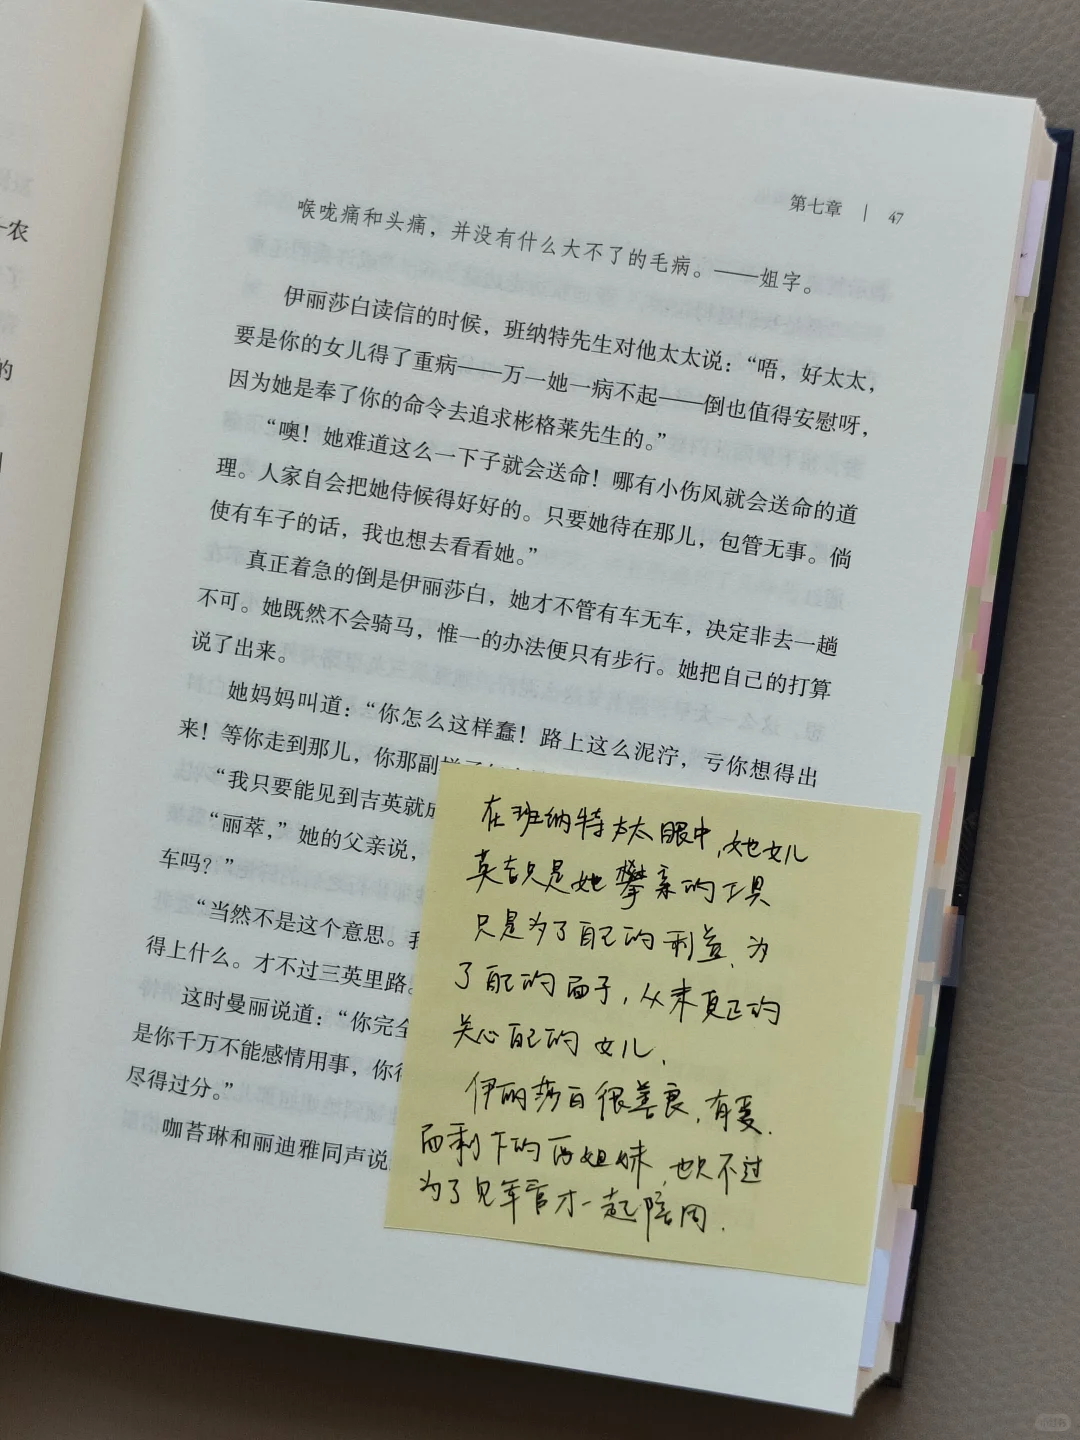 第七章 | 47
喉咙痛和头痛，并没有什么大不了的毛病。——姐字。
伊丽莎白读信的时候，班纳特先生对他太太说：“唔，好太太，
要是你的女儿得了重病——万一她一病不起——倒也值得安慰呀，
因为她是奉了你的命令去追求彬格莱先生的。”
“噢！她难道这么一下子就会送命！哪有小伤风就会送命的道
理。人家自会把她侍候得好好的。只要她待在那儿，包管无事。倘
使有车子的话，我也想去看看她。”
真正着急的倒是伊丽莎白，她才不管有车无车，决定非去一趟
不可。她既然不会骑马，惟一的办法便只有步行。她把自己的打算
说了出来。
她妈妈叫道：“你怎么这样蠢！路上这么泥泞，亏你想得出
来！等你走到那儿，你那副
“我只要能见到吉英就
“丽萃，”她的父亲说，
车吗？”
“当然不是这个意思。
得上什么。才不过三英里路。
这时曼丽说道：“你完全
是你千万不能感情用事，你
尽得过分。”
咖苔琳和丽迪雅同声说
在班纳特太太眼中,她女儿
英吉只是她攀亲的工具
只是为了自己的利益、为
了自己的面子，从未真正的
关心自己的女儿、
伊丽莎白很善良，有爱.
而剩下的两姐妹，也只不过
为了见军官才一起陪同.
一农
的